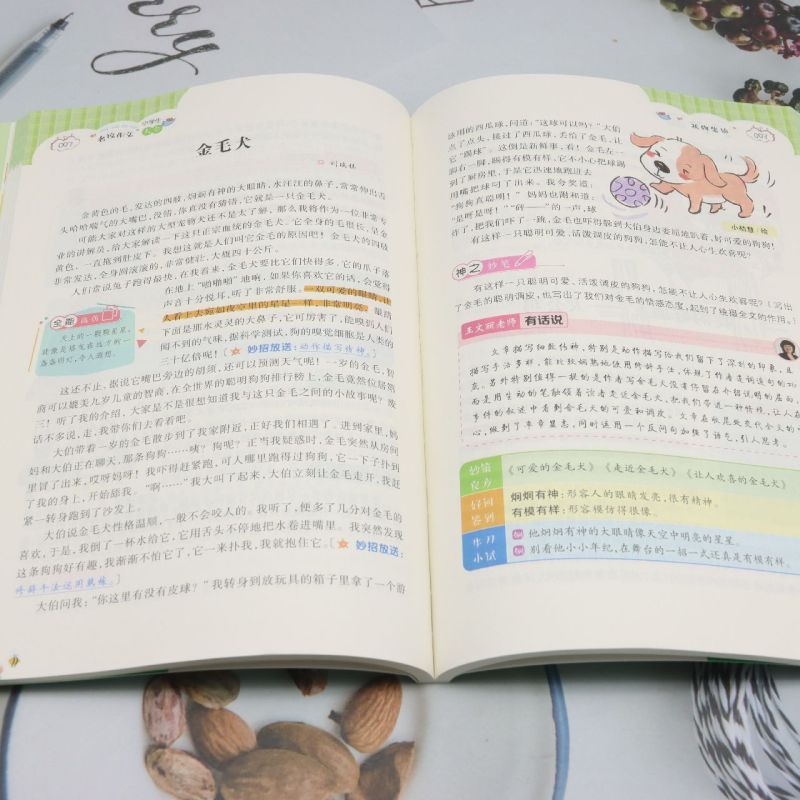 rry
007
名校作文
小学生
金毛犬
刘成林
金黄色的毛，发达的四肢，炯炯有神的大眼睛，水汪汪的鼻子，常常伸出舌
头哈哈喘气的大嘴巴，没错，你真没有猜错，它就是一只金毛犬。
可能大家对这样的大型宠物犬还不是太了解，那么我将作为一位非常专
业的讲解员，给大家讲解一下这只正宗传统的金毛犬。它全身的毛很长，是金
黄色，一直拖到肚皮下。我想这就是人们叫它金毛的原因吧！金毛犬的四肢
非常发达，全身圆滚滚的，非常健壮，大概四十公斤。
人们常说兔子跑得最快，在我看来，金毛犬要比它们快得多，它的爪子落
在地上“啪啪啪”地响，如果你喜欢它的话，会觉得
声音十分悦耳，听了非常舒服。一双可爱的眼睛，让
人看上去宛如夜空里的星星一样，非常明亮。眼睛
下面是那水灵灵的大鼻子，它可厉害了，能嗅到人们
闻不到的气味，据科学测试，狗的嗅觉细胞是人类的
三十亿倍呢！〔妙招放送：动作描写传神。〕
全能仿写
天上的一颗颗星星，
就像是挂在远方的一
盏盏明灯，令人遐想。
这还不止，据说它嘴巴旁边的胡须，还可以预测天气呢！一岁的金毛，智
商可以媲美几岁儿童的智商，在全世界的聪明狗狗排行榜上，金毛竟然位居第
三！听了我的介绍，大家是不是很想知道我与这只金毛之间的小故事呢？废
话不多说，走，我带你们去看看吧。
大伯带着一岁的金毛散步到了我家附近，正好我们相遇了。进到家里，妈
妈和大伯正在聊天，那条狗狗……咦？狗呢？正当我疑惑时，金毛突然从房间
里冒了出来，哎呀妈呀！我吓得赶紧跑，可人哪里跑得过狗狗，它一下子扑到
了我的身上，开始舔我。“啊……”我大叫了起来，大伯立刻让金毛走开，我赶
紧一转身跑到了沙发上。
大伯说金毛犬性格温顺，一般不会咬人的。我听了，便多了几分对金毛的
喜欢，于是，我倒了一杯水给它，它用舌头不停地把水卷进嘴里。我突然发现
这条狗狗好有趣，我渐渐不怕它了，它一来扑我，我就抱住它。〔妙招放送：
〕
大伯问我：“你这里有没有皮球？”我转身到放玩具的箱子里拿了一个游
007
泳用的西瓜球，问道：“这球可以吗？”大伯
点了点头，接过了西瓜球，丢给了金毛，让
它“踢球”。这倒是新鲜事，看！金毛左一
脚右一脚，踢得有模有样，它不小心把球踢
到了厨房里，于是它迅速地跑进去
用嘴把球叼了出来。我夸奖道：
“狗狗真聪明！”妈妈也附和道：
“是呀是呀！”“砰——”的一声，球
炸了，把我们吓了一跳，金毛也吓得躲到大伯身边委屈地趴着，好可爱的狗狗！
有这样一只聪明可爱、活泼调皮的狗狗，怎能不让人心生欢喜呢？
小桔慧/绘
神之妙笔
有这样一只聪明可爱、活泼调皮的狗狗，怎能不让人心生欢喜呢？（写出
了金毛的聪明调皮，也写出了我们对金毛的情感态度，起到了统摄全文的作用。）
王文丽老师 有话说
文章描写细致传神，特别是动作描写给我们留了深刻的印象，且
描写手法多样，能比较娴熟地使用修辞手法，体现了作者走词遣句的功
《可爱的金毛犬》《走近金毛犬》《让人欢喜的金毛犬》
好词
签到
炯炯有神：形容人的眼睛发亮，很有精神。
有模有样：形容模仿得很像。
牛刀
小试
他炯炯有神的大眼睛像天空中明亮的星星。
别看他小小年纪，在舞台的一招一式还真是有模有样。